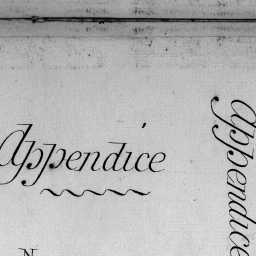 Appendice
Appendice
N